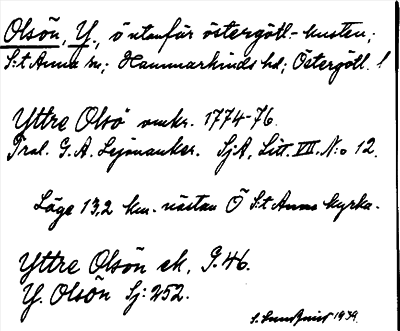 Olsön, Y., ö utanför östergötl.-kusten;
S:t Anna sn; Hammarkinds hd; Östergötl. l
Yttre Olsö omkr. 1774-76.
Tral. G. A. Lejonanker. SjA, Litt. VII. N:o 12.
Läge 13,2 km. nästan Ö S:t Anna kyrka.
Yttre Olsön ek, G.46.
Y. Olsön Sj: 252.
S. Lundqvist 1939.